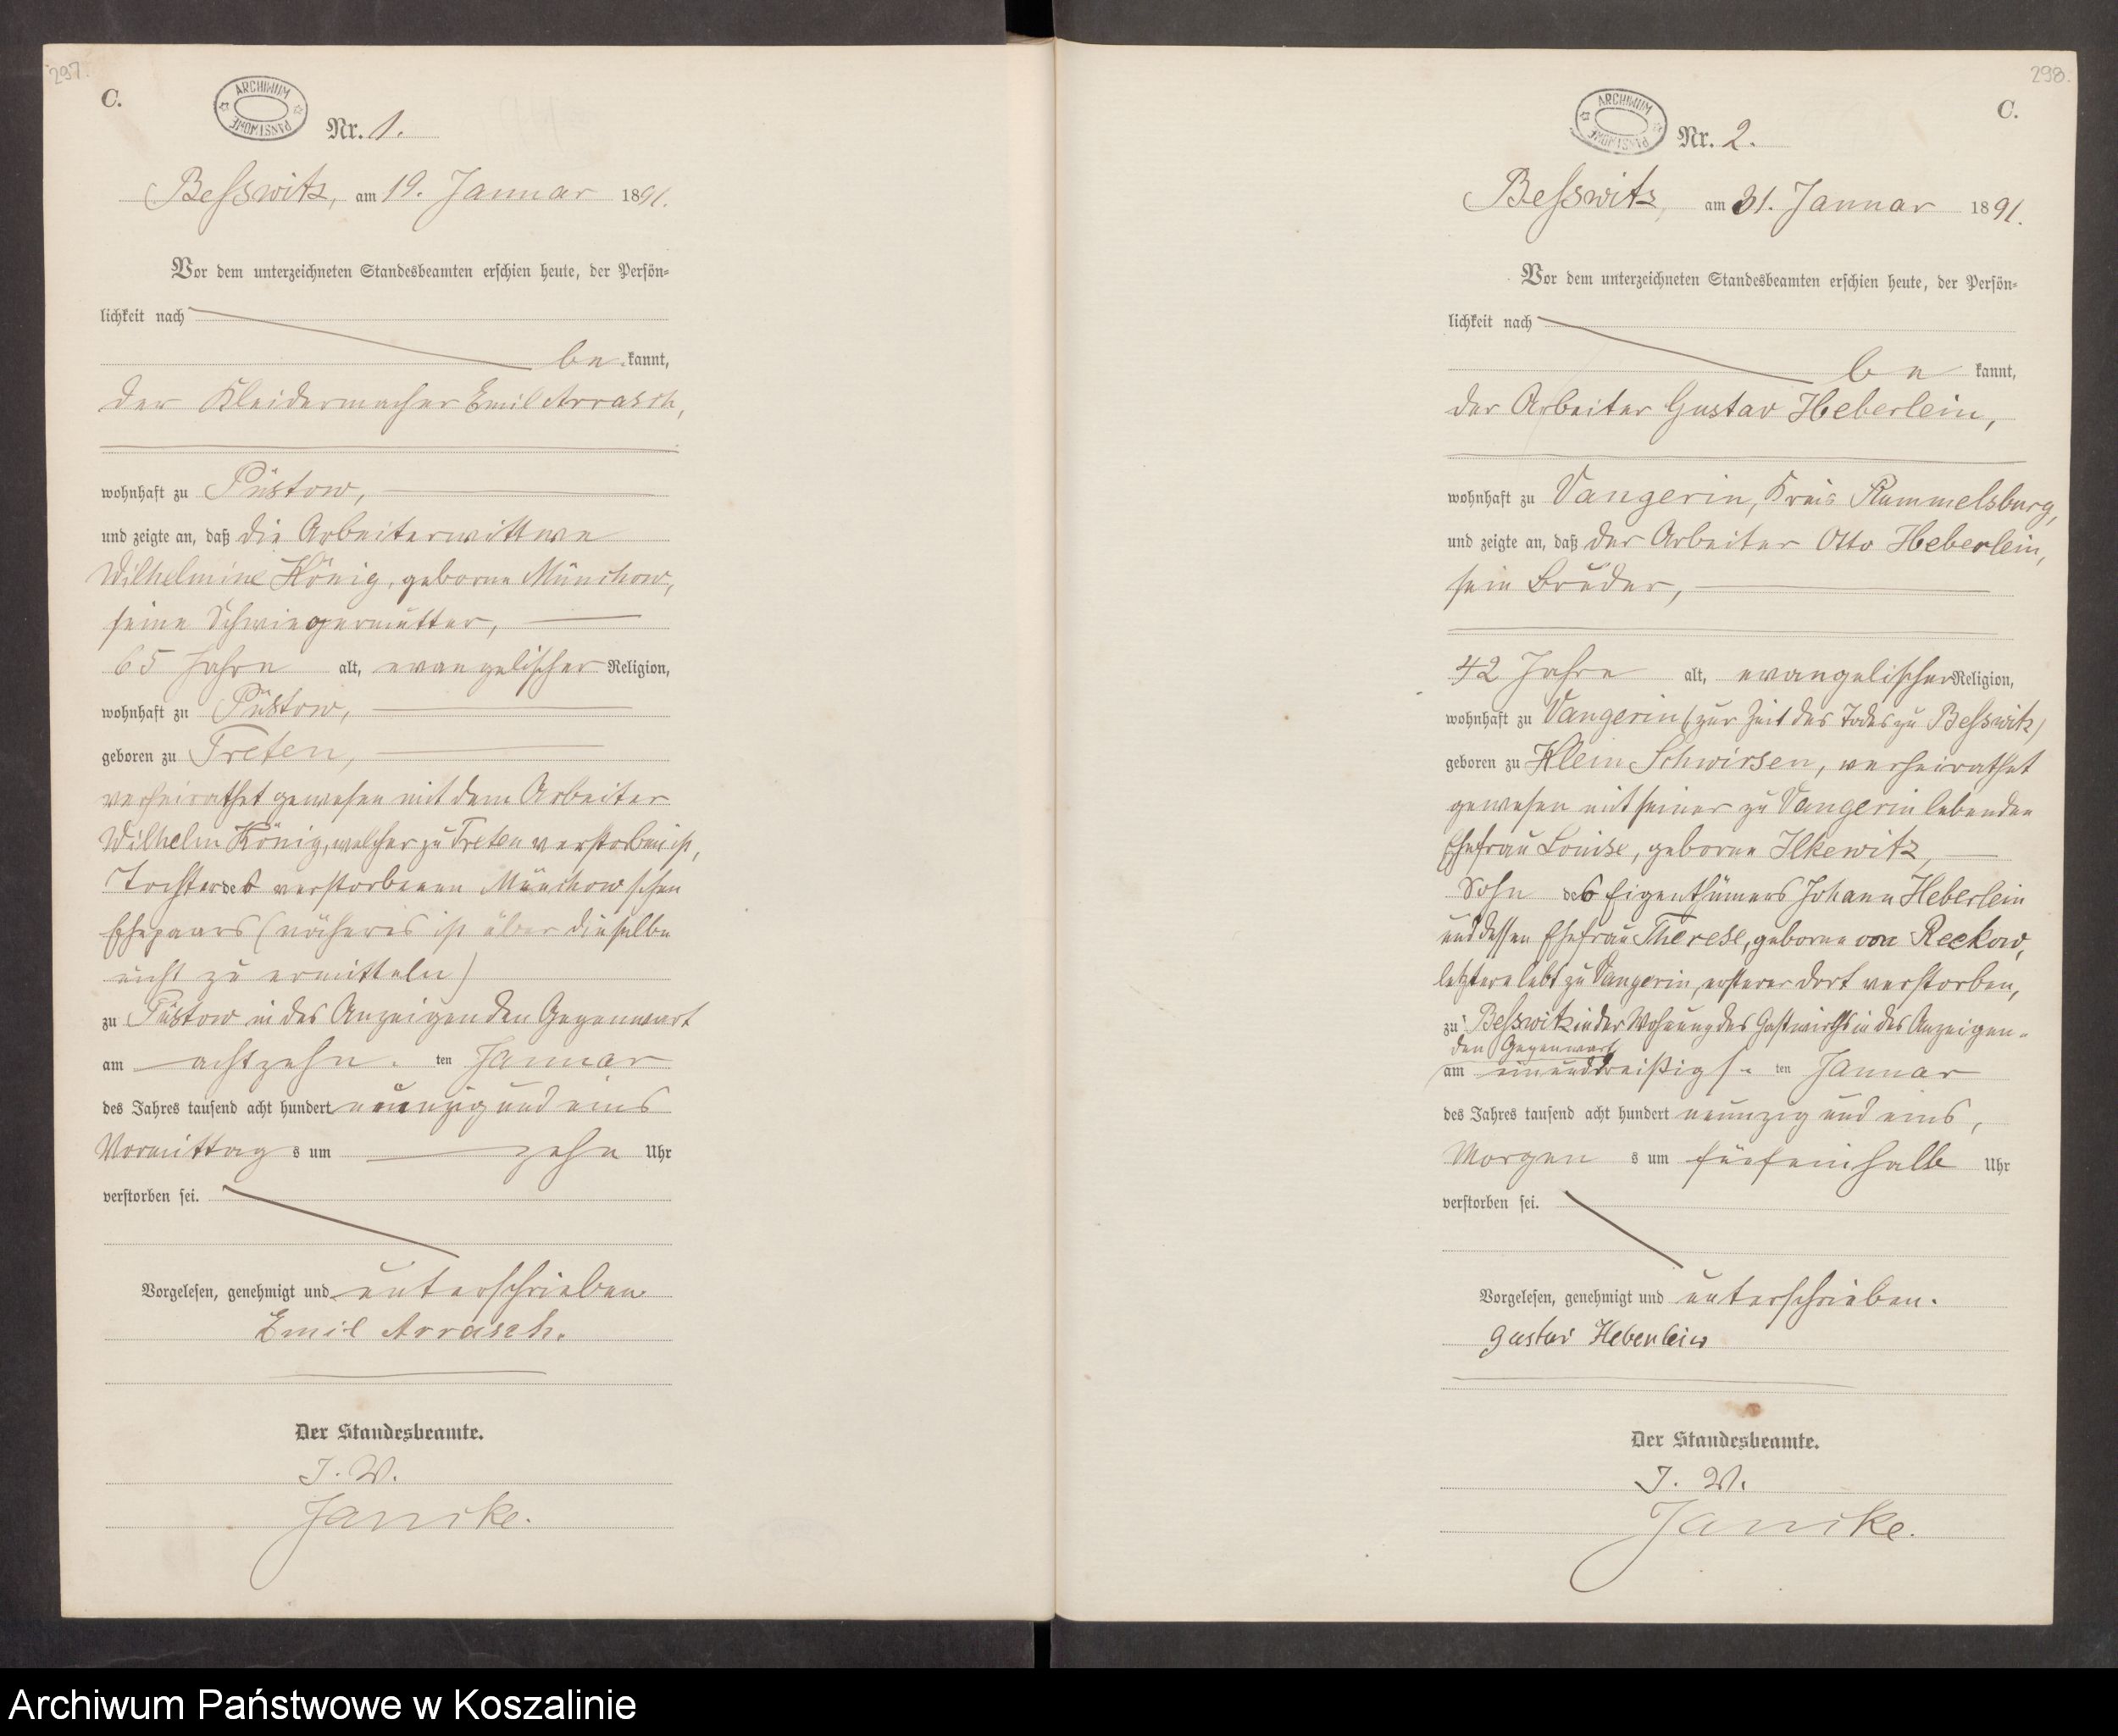 297.
C.
ARCHIWUM PAŃSTWOWE
Nr. 1.
Beſswitz, am 19. Januar 1891.
Vor dem unterzeichneten Standesbeamten erschien heute, der Persön-
lichkeit nach
be kannt,
der Kleidermacher Emil Arrasch,
wohnhaft zu Püstow,
und zeigte an, daß die Arbeiterwittwe
Wilhelmine König, geborne Münchow,
seine Schwiegermutter,
65 Jahre alt, evangelischer Religion,
wohnhaft zu Püstow,
geboren zu Treten,
verheirathet gewesen mit dem Arbeiter
Wilhelm König, welcher zu Treten verstorben ist,
Tochter des verstorbenen Münchow'schen
Ehepaars (näheres ist über dieselbe
nicht zu ermitteln)
zu Püstow in des Anzeigenden Gegenwart
am achtzehn- ten Januar
des Jahres tausend acht hundert neunzig und eins
Vormittag s um zehn Uhr
verstorben sei.
Vorgelesen, genehmigt und unterschrieben
Emil Arrasch.
Der Standesbeamte.
J. V.
Janike.
298.
C.
ARCHIWUM PAŃSTWOWE
Nr. 2.
Beſswitz, am 31. Januar 1891.
Vor dem unterzeichneten Standesbeamten erschien heute, der Persön-
lichkeit nach
be kannt,
der Arbeiter Gustav Heberlein,
wohnhaft zu Vangerin, Kreis Rummelsburg,
und zeigte an, daß der Arbeiter Otto Heberlein,
sein Bruder,
42 Jahre alt, evangelischer Religion,
wohnhaft zu Vangerin (zur Zeit des Todes zu Beſswitz)
geboren zu Klein Schwirsen, verheirathet
gewesen mit seiner zu Vangerin lebenden
Ehefrau Louise, geborne Ilkewitz,
Sohn des Eigenthümers Johann Heberlein
und dessen Ehefrau Therese, geborne von Reckow,
letztere lebt zu Vangerin, ersterer dort verstorben,
zu Beſswitz in der Wohnung des Gastwirths in des Anzeigen-
den Gegenwart
am einunddreißigs- ten Januar
des Jahres tausend acht hundert neunzig und eins,
Morgen s um fünfeinhalb Uhr
verstorben sei.
Vorgelesen, genehmigt und unterschrieben.
Gustav Heberlein
Der Standesbeamte.
J. V.
Janike.
Archiwum Państwowe w Koszalinie